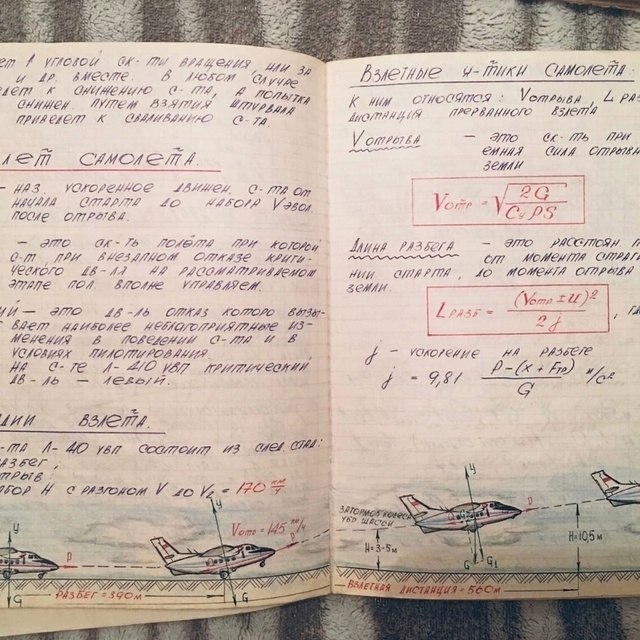 ет 1 угловой ск-ти вращения или за
и др. вместе. В любом случае
едет к снижению с-та, а попытка
снижен. путем взятия штурвала
приведет к сваливанию с-та.
лет самолета.
– наз. ускоренное движен. с-та от
начала старта до набора Vэвол.
после отрыва.
– это ск-ть полёта при которой
с-т при внезапном отказе крити-
ческого дв-ля на рассматриваемом
этапе пол. вполне управляем.
ий – это дв-ль отказ которо вызы-
вает наиболее неблагоприятные из-
менения в поведении с-та и в
условиях пилотирования.
На с-те Л-410 увп критический
дв-ль – левый.
дии взлета.
-та Л-410 увп состоит из след. стад:
азбег;
трыв;
абор H с разгоном V до V2 = 170 км/ч
Vотр = 145 км/ч
y
P
G
y
P
G
Разбег = 390 м
Взлетные х-тики самолета:
К ним относятся: Vотрыва, L раз
дистанция прерванного взлета
V отрыва – это ск-ть при
емная сила отрыв
земли
Vотр = √2G/CyρS
Длина разбега – это расстоян. п
от момента страги
нии старта, до момента отрыва
земли.
L разб = (Vотр ± u)²/2j , гд
j – ускорение на разбеге
j = 9,81 P-(x+Fтр)/G м/с²
Затормоз колеса
убр шасси
H=3-5м
y
P
G
G1
H=10,5м
Взлетная дистанция = 560м